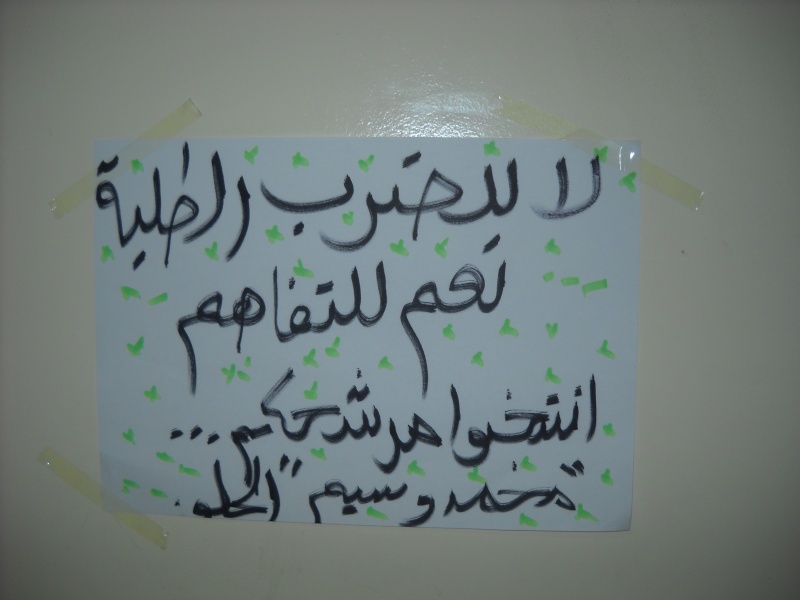 لا لتحزب الطلبة
نعم للتفاهم
انتخبوا مرشحكم...
"محمد وسيم" الحلو.